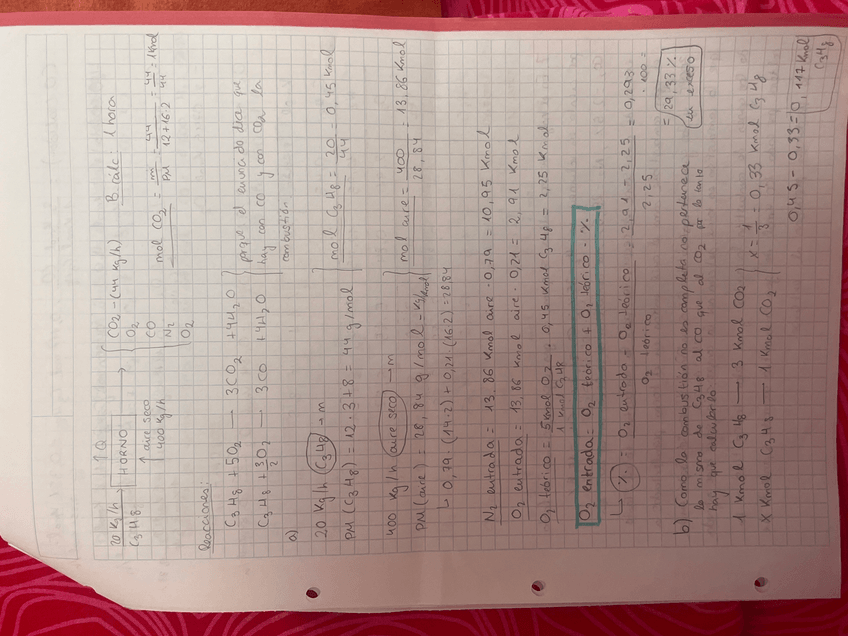 20 kg/h
C3H8
HORNO
↑Q
↑ aire seco
400 kg/h
CO2 - (44 kg/h)
O2
CO
N2
O2
B. cálc: 1 hora
mol CO2 = m/PM = 44/12+16·2 = 44/44 = 1 Kmol
Reacciones:
C3H8 + 5O2 → 3CO2 + 4H2O
C3H8 + 3/2 O2 → 3CO + 4H2O
porque el enunciado dice que
hay con CO y con CO2 la
combustión
a)
20 Kg/h C3H8 → m
PM (C3H8) = 12·3+8 = 44 g/mol
mol C3H8 = 20/44 = 0,45 Kmol
400 Kg/h aire seco → m
PM (aire) = 28,84 g/mol = Kg/Kmol
↳ 0,79·(14·2) + 0,21·(16·2) = 28,84
mol aire = 400/28,84 = 13,86 Kmol
N2 entrada = 13,86 Kmol aire · 0,79 = 10,95 Kmol
O2 entrada = 13,86 Kmol aire · 0,21 = 2,91 Kmol
O2 teórico = 5 Kmol O2/1 Kmol C3H8 · 0,45 Kmol C3H8 = 2,25 Kmol
O2 entrada = O2 teórico + O2 teórico · %
↳ % = O2 entrada - O2 teórico/O2 teórico = 2,91 - 2,25/2,25 = 0,293
· 100 =
= 29,33 %
en exceso
b) Como la combustión no es completa no pertenece
lo mismo de C3H8 al CO que al CO2 por lo tanto
hay que calcularlo
1 Kmol C3H8 — 3 Kmol CO2
X Kmol C3H8 — 1 Kmol CO2
x = 1/3 = 0,33 Kmol C3H8
0,45 - 0,33 = 0,117 Kmol
C3H8